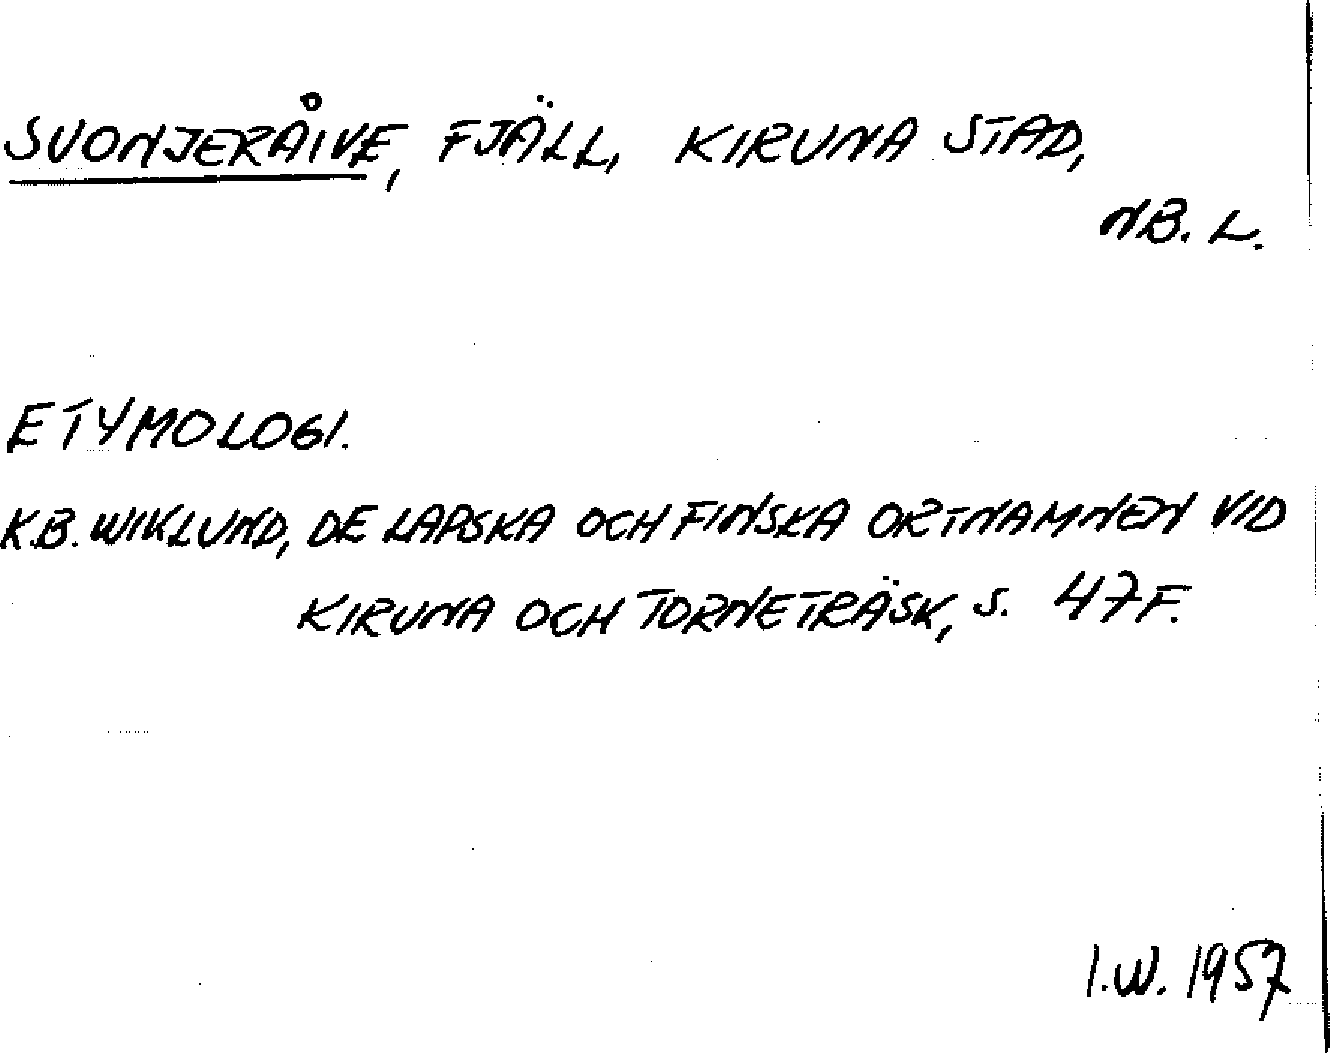 SUONJERÅIVE, FJÄLL, KIRUNA STAD,
NB. L.
ETYMOLOGI.
K.B. WIKLUND, DE LAPSKA OCH FINSKA ORTNAMNEN VID
KIRUNA OCH TORNETRÄSK, S. 47 F.
I.W. 1957